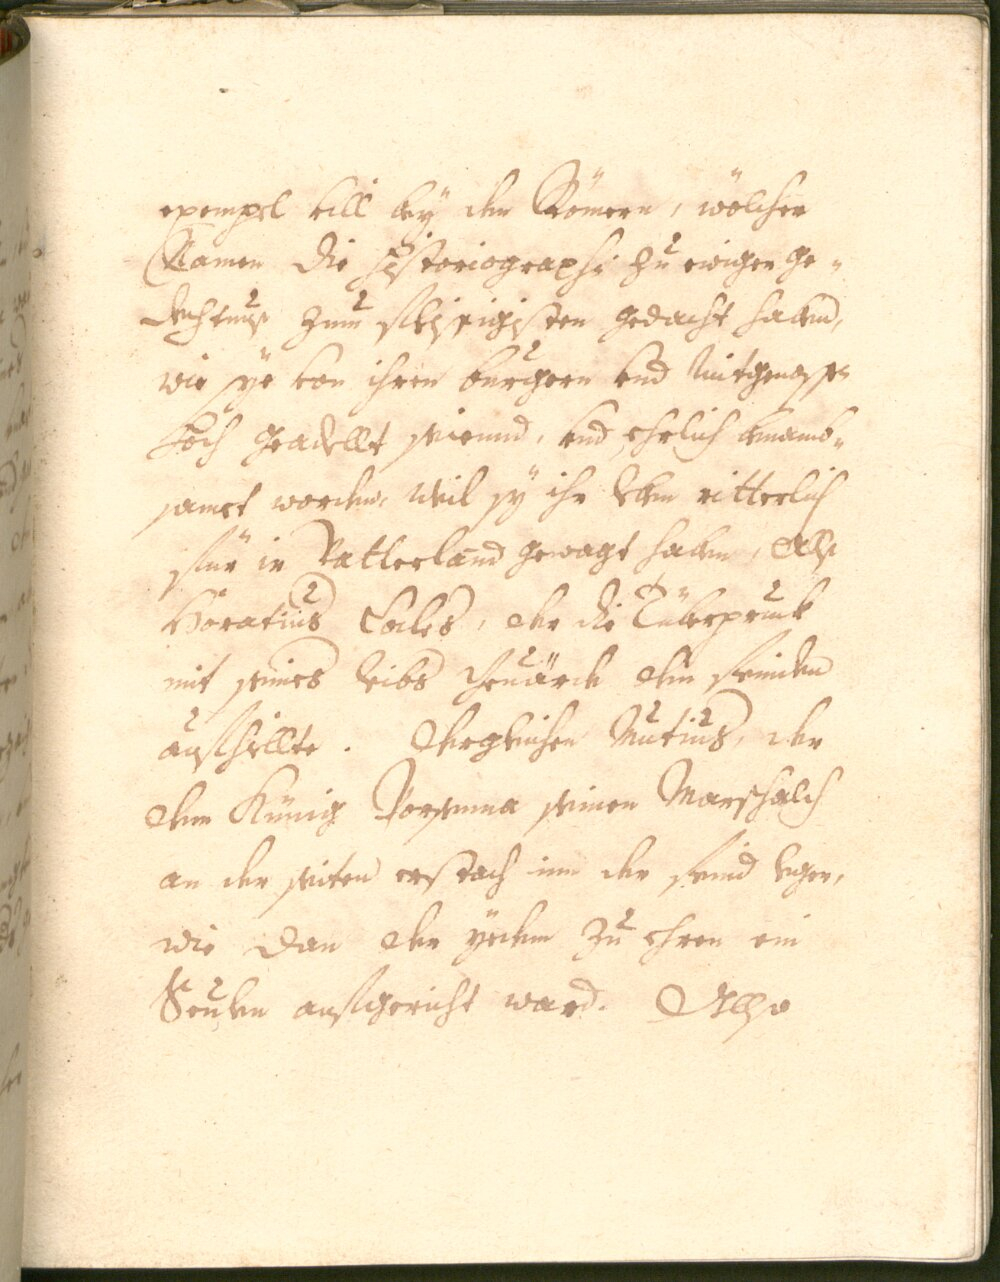 exempel vill bey den Römern, wölcher
Namen die historiographi zu ewiger ge-
dechtnuß zum fleissigisten gedacht haben,
wie sye von ihren burgern und Mitgenossen
hoch geadellt seiennd, und ehrlich benamb-
samet worden, weil sy ihr leben ritterlich
für ir Vatterland gewagt haben, Alß
Horatius Cocles, der die Tüberpruck
mit seines leibs den feinden
auffhiellte. Dergleichen Mutius, der
dem Künig Porsenna seinen Marschalch
an der seiten erstach inn der feind leger,
wie dan der yedem zu ehren ein
Seulen auffgericht ward. Also